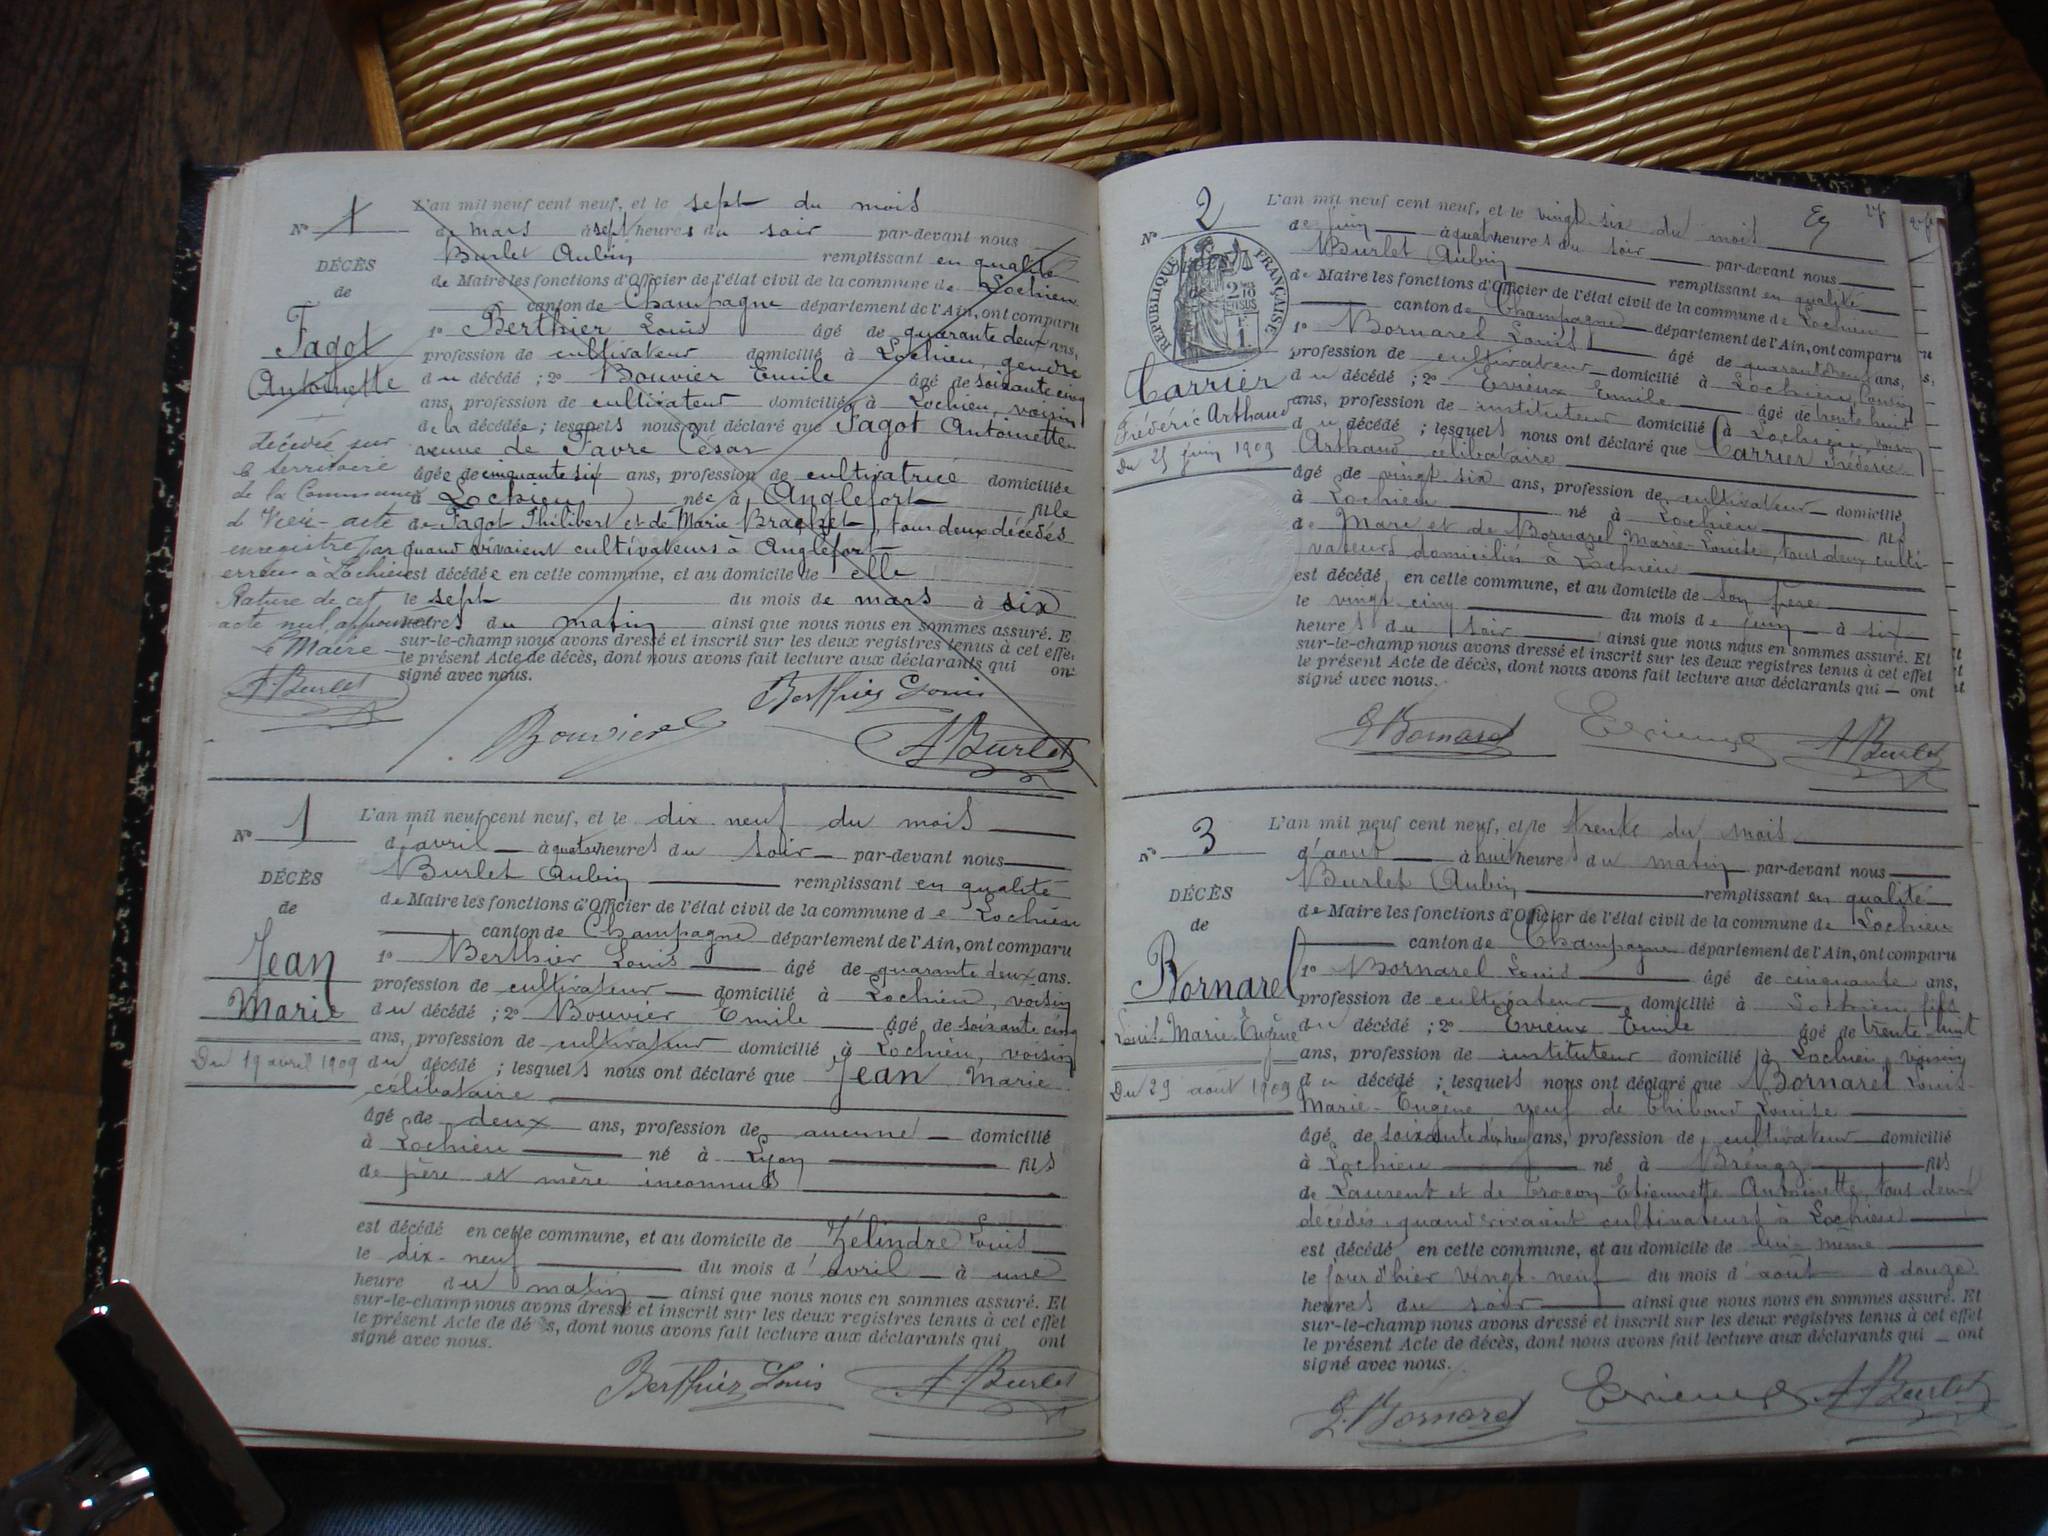 Nº 1
DÉCÈS
de
Fagot
Antoinette
décédée sur
le territoire
de la Commune
de Vieu - acte
enregistré par
erreur à Lochieu
Rature de cet
acte nul, approuvée
Le Maire
A. Burlet
L'an mil neuf cent neuf, et le sept du mois
de mars à sept heures du soir par-devant nous
Burlet Aubin remplissant en qualité
de Maire les fonctions d'Officier de l'état civil de la commune de Lochieu
canton de Champagne département de l'Ain, ont comparu
1º Berthier Louis âgé de quarante deux ans,
profession de cultivateur domicilié à Lochieu, gendre
du décédé ; 2º Bouvier Emile âgé de soixante cinq
ans, profession de cultivateur domicilié à Lochieu, voisin
de la décédée ; lesquels nous ont déclaré que Fagot Antoinette
veuve de Favre César
âgée de cinquante six ans, profession de cultivatrice domiciliée
à Lochieu née à Anglefort fille
de Fagot Philibert et de Marie Brachet, tous deux décédés
quand vivaient cultivateurs à Anglefort
est décédée en cette commune, et au domicile de elle
le sept du mois de mars à six
heures du matin ainsi que nous nous en sommes assuré. E
sur-le-champ nous avons dressé et inscrit sur les deux registres tenus à cet effe
le présent Acte de décès, dont nous avons fait lecture aux déclarants qui on
signé avec nous.
Berthier Louis
Bouvier E
A. Burlet
Nº 1
DÉCÈS
de
Jean
Marie
Du 19 avril 1909
L'an mil neuf cent neuf, et le dix-neuf du mois
d'avril à quatre heures du soir par-devant nous
Burlet Aubin remplissant en qualité
de Maire les fonctions d'Officier de l'état civil de la commune de Lochieu
canton de Champagne département de l'Ain, ont comparu
1º Berthier Louis âgé de quarante deux ans.
profession de cultivateur domicilié à Lochieu, voisin
du décédé ; 2º Bouvier Emile âgé de soixante cinq
ans, profession de cultivateur domicilié à Lochieu, voisin
du décédé ; lesquels nous ont déclaré que Jean Marie
célibataire
âgé de deux ans, profession de aucune domicilié
à Lochieu né à Lyon fils
de père et mère inconnus
est décédé en cette commune, et au domicile de Zélindre Louis
le dix-neuf du mois d'avril à une
heure du matin ainsi que nous nous en sommes assuré. Et
sur-le-champ nous avons dressé et inscrit sur les deux registres tenus à cet effet
le présent Acte de décès, dont nous avons fait lecture aux déclarants qui ont
signé avec nous.
Berthier Louis
A. Burlet
27
Nº 2
RÉPUBLIQUE FRANÇAISE
Carrier
Frédéric Arthaud
Du 25 juin 1909
L'an mil neuf cent neuf, et le vingt-six du mois
de juin à quatre heures du soir par-devant nous
Burlet Aubin remplissant en qualité
de Maire les fonctions d'Officier de l'état civil de la commune de Lochieu
canton de Champagne département de l'Ain, ont comparu
1º Bornarel Louis âgé de ans,
profession de cultivateur domicilié à Lochieu, cousin
du décédé ; 2º Evieux Emile âgé de trente huit
ans, profession de instituteur domicilié à Lochieu, voisin
du décédé ; lesquels nous ont déclaré que Carrier Frédéric
Arthaud célibataire
âgé de vingt six ans, profession de cultivateur domicilié
à Lochieu né à Lochieu fils
de Marc et de Bornarel Marie-Louise, tous deux culti-
vateurs domiciliés à Lochieu
est décédé en cette commune, et au domicile de son père
le vingt cinq du mois de juin à six
heures du soir ainsi que nous nous en sommes assuré. Et
sur-le-champ nous avons dressé et inscrit sur les deux registres tenus à cet effet
le présent Acte de décès, dont nous avons fait lecture aux déclarants qui ont
signé avec nous.
L. Bornarel
Evieux E
A. Burlet
Nº 3
DÉCÈS
de
Bornarel
Louis-Marie-Eugène
Du 29 août 1909
L'an mil neuf cent neuf, et le trente du mois
d'août à huit heures du matin par-devant nous
Burlet Aubin remplissant en qualité
de Maire les fonctions d'Officier de l'état civil de la commune de Lochieu
canton de Champagne département de l'Ain, ont comparu
1º Bornarel Louis âgé de cinquante ans,
profession de cultivateur domicilié à Lochieu, fils
du décédé ; 2º Evieux Emile âgé de trente-huit
ans, profession de instituteur domicilié à Lochieu, voisin
du décédé ; lesquels nous ont déclaré que Bornarel Louis-
Marie-Eugène, veuf de Thiboud Louise
âgé de soixante dix neuf ans, profession de cultivateur domicilié
à Lochieu né à Brénaz fils
de Laurent et de Trocon Etiennette Antoinette, tous deux
décédés, quand vivaient cultivateurs à Lochieu
est décédé en cette commune, et au domicile de lui-même
le jour d'hier vingt-neuf du mois d'août à douze
heures du soir ainsi que nous nous en sommes assuré. Et
sur-le-champ nous avons dressé et inscrit sur les deux registres tenus à cet effet
le présent Acte de décès, dont nous avons fait lecture aux déclarants qui ont
signé avec nous.
L. Bornarel
Evieux E
A. Burlet